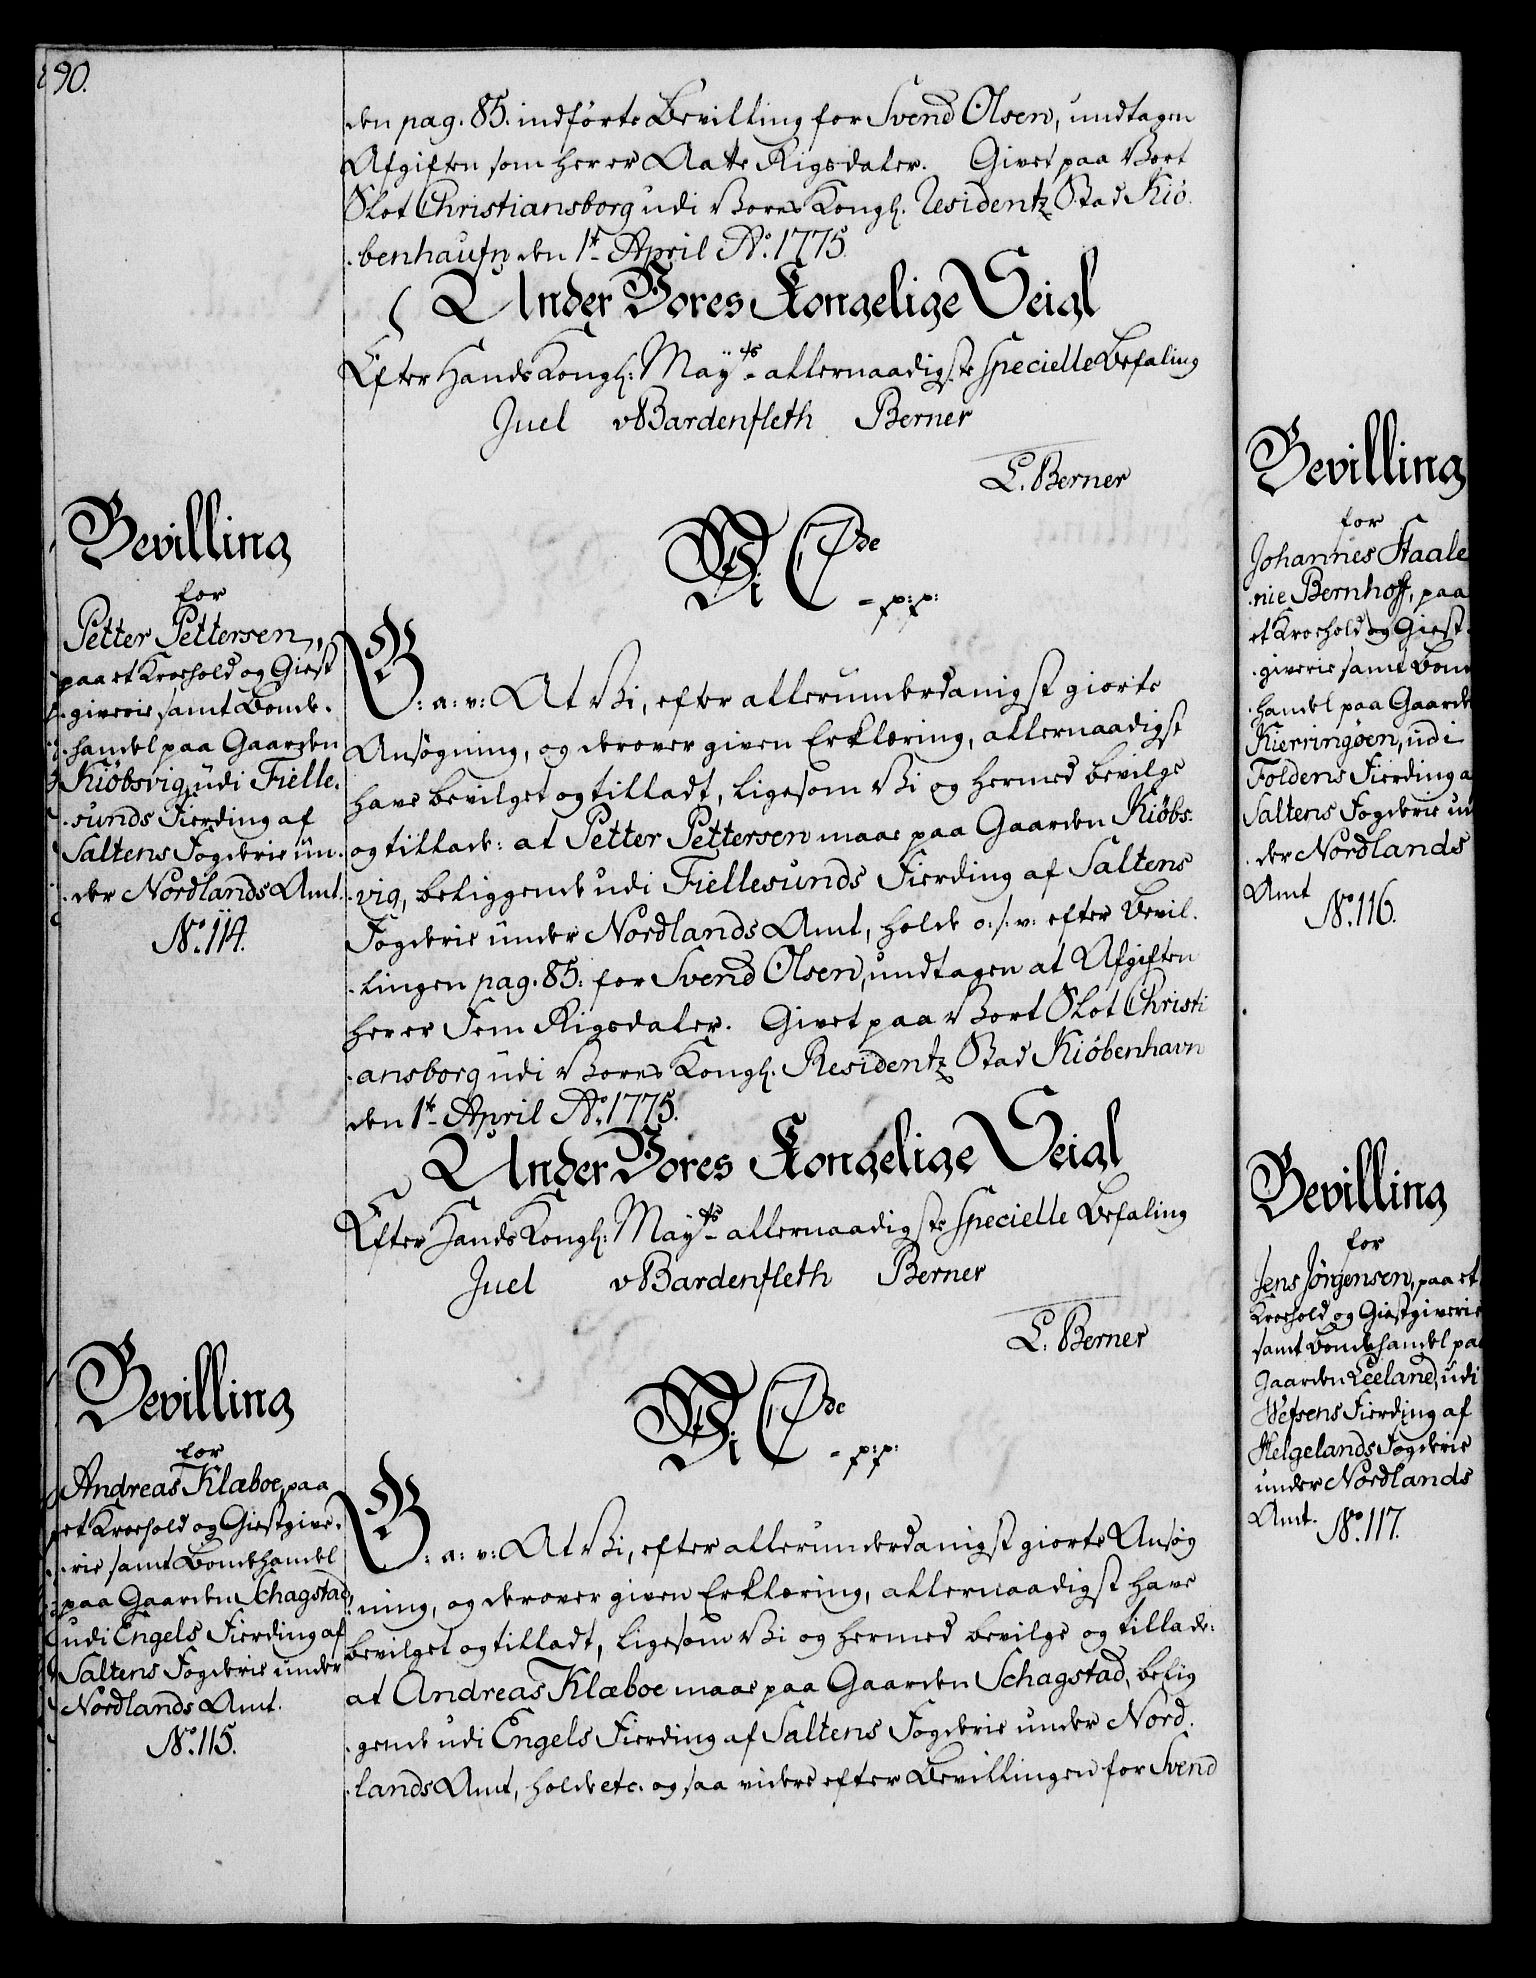 90.
den pag. 85. indførte Bevilling for Svend Olsen, undtagen
Afgiften som her er Aatte Rigsdaler. Givet paa Vort
Slot Christiansborg udi Vores Kongl. Residentz Stad Kiö-
-benhaufn den 1te April Ao. 1775.
Under Vores Kongelige Seigl
Efter Hands Kongl: Mayts allernaadigste specielle Befaling
Juel vBardenfleth Berner
L. Berner
Bevilling
for
Petter Pettersen,
paa et Kroehold og Giest
-giverie samt Bonde-
-handel paa Gaarden
Kiöbsvig, udi Fielle-
-sunds Fierding af
Saltens Fogderie un-
-der Nordlands Amt.
No. 114.
Vi C7de
- p:p:
G: a: v: At Vi, efter allerunderdanigst giorte
Ansøgning, og derover given Erklæring, allernaadigst
have bevilget og tilladt, ligesom Vi og hermed bevilge
og tillade: at Petter Pettersen maae paa Gaarden Kiöbs-
-vig, beliggende udi Fiellesunds Fierding af Saltens
Fogderie under Nordlands Amt, holde o: s: v: efter Bevil-
-lingen pag. 85: for Svend Olsen, undtagen at Afgiften
her er Fem Rigsdaler. Givet paa Vort Slot Christi
-ansborg udi Vores Kongl. Residentz Stad Kiöbenhavn
den 1te April Ao. 1775.
Under Vores Kongelige Seigl
Efter Hands Kongl: Mayts allernaadigste specielle Befaling
Juel vBardenfleth Berner
L. Berner
Bevilling
for
Andreas Klæboe, paa
et Kroehold og Giestgive-
-rie samt Bondehandel
paa Gaarden Schagstad,
udi Engels Fierding af
Saltens Fogderie under
Nordlands Amt.
No. 115.
Vi C7de
- p:p:
G: a: v: At Vi, efter allerunderdanigst giorte Ansøg
-ning, og derover given Erklæring, allernaadigst have
bevilget og tilladt, ligesom Vi og hermed bevilge og tillade:
at Andreas Klæboe maae paa Gaarden Schagstad, belig
-gende udi Engels Fierding af Saltens Fogderie under Nord-
-lands Amt, holde etc. og saa videre efter Bevillingen for Svend
Bevilling
for
Johannes Staale
-nie Bernhoff, paa
et Kroehold og Giest-
-giverie samt Bon
-handel paa Gaarde
Kierringöen, udi
Foldens Fierding a
Saltens Fogderie un
-der Nordlands
Amt
No. 116.
Bevilling
for
Jens Jörgensen, paa et
Kroehold og Giestgiverie
samt Bondehandel paa
Gaarden Leeland, udi
Wefsens Fierding af
Helgelands Fogderie
under Nordlands
Amt.
No. 117.